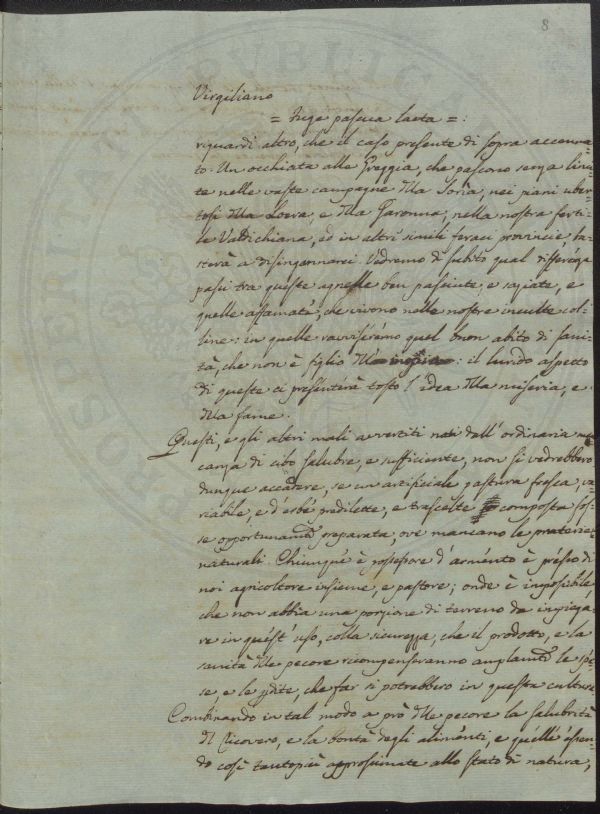 8
Virgiliano
= Fuge pascua laeta =:
riguardi altro, che il caso presente di sopra accenna=
to. Un occhiata alle Greggia, che pascono senza limi=
te nelle vaste campagne della Soria, nei piani uber=
tosi della Loera, e della Garonna, nella nostra ferti=
le Valdichiana, ed in altri simili feraci provincie, ba=
sterà a disingannarci. Vedremo di subito qual differenza
passi tra queste agnelle ben pasciute, e saziate, e
quelle affamate, che vivono nelle nostre incolte col=
line: in quelle ravviseremo quel buon abito di sani=
tà, che non è figlio dell'inopia: il lurido aspetto
di queste ci presenterà tosto l'idea della miseria, e
della fame.
Questi, e gli altri mali avvertiti nati dall'ordinaria man=
canza di cibo salubre, e sufficiente, non si vedrebbero
dunque accadere, se un artificiale pastura fresca, va=
riabile, e d'erbe predilette, e trascelte composta fos=
se opportunamte preparata, ove mancano le praterie
naturali. Chiunque è possessore d'armento è presso di
noi agricoltore insieme, e pastore; onde è impossibile
che non abbia una porzione di terreno da impiega=
re in quest'uso, colla sicurezza, che il prodotto, e la
sanità delle pecore ricompenseranno amplamte le spe=
se, e le pdite, che far si potrebbero in questa cultura.
Combinando in tal modo a prò delle pecore la salubrità
del Ricovero, e la bontà degli alimenti, e quelle essen=
do così tantopiù approssimate allo stato di natura,